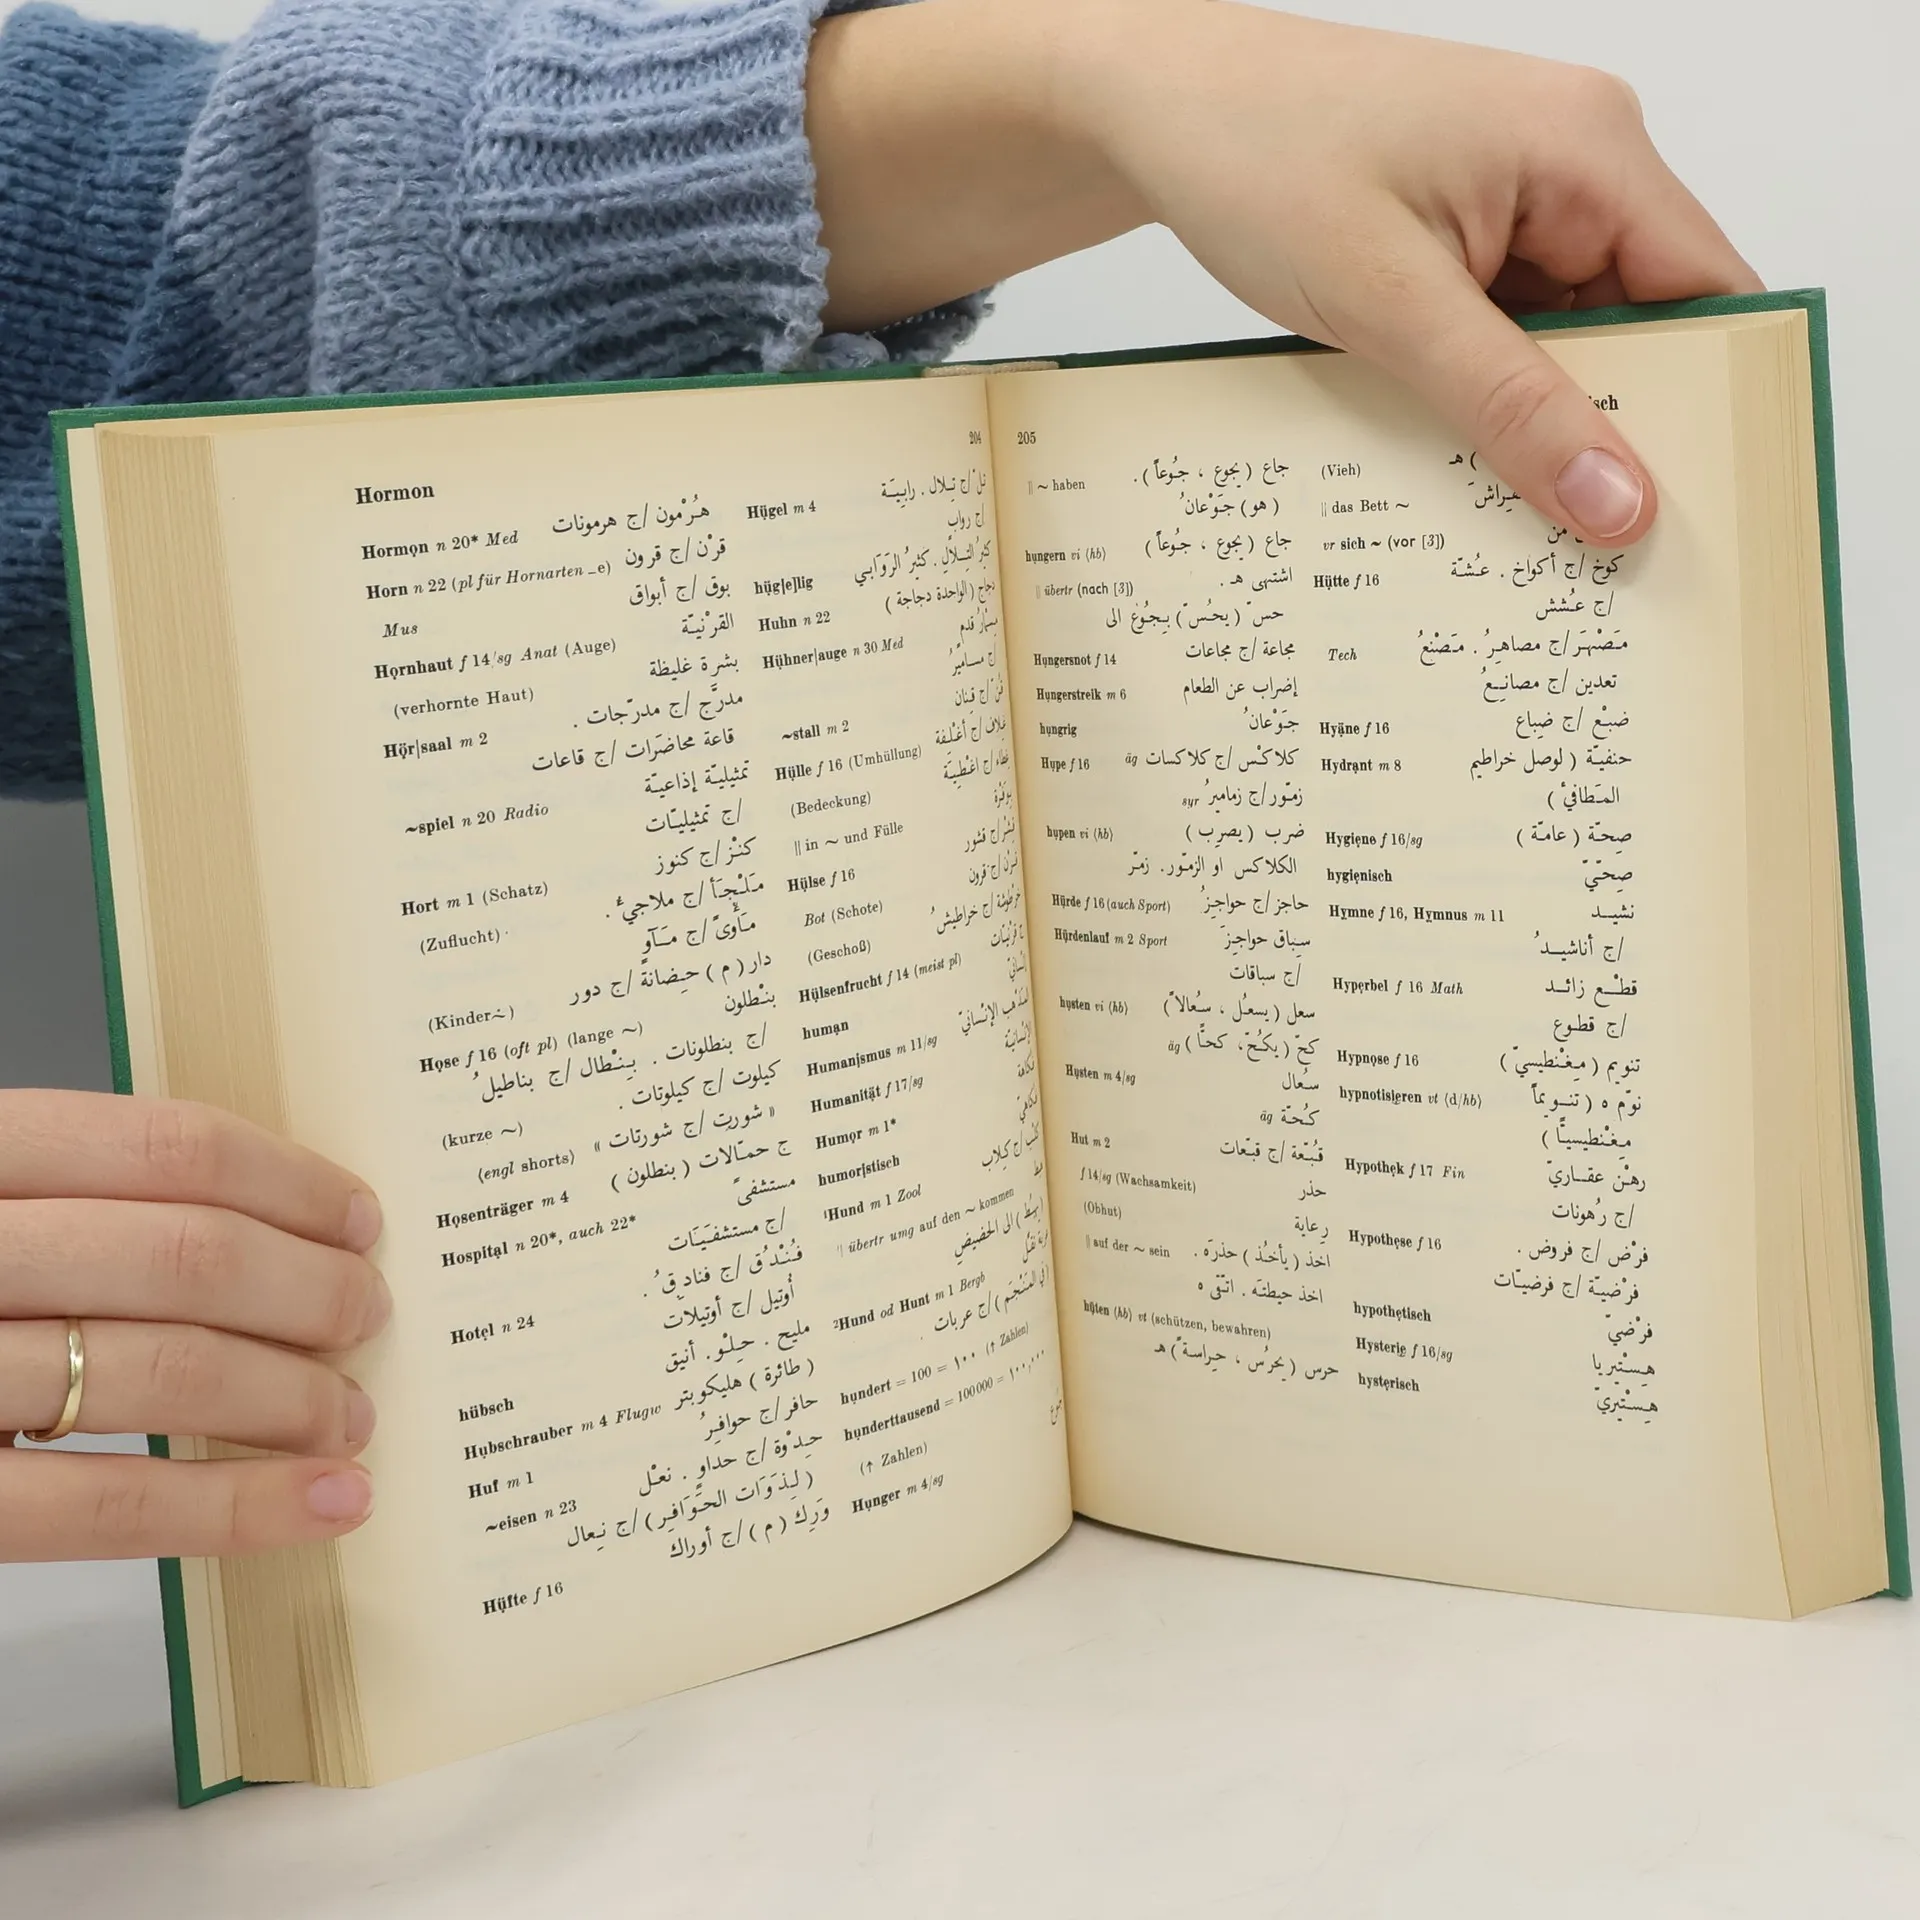 204
Hormon
Hormon n 20* Med هُرْمون /ج هرمونات
Horn n 22 (pl für Hornarten _e) قرْن /ج قرون
Mus بوق /ج أبواق
Hornhaut f 14/sg Anat (Auge) القرْنيّة
(verhornte Haut) بشرة غليظة
Hör|saal m 2 مدرَّج /ج مدرّجات .
قاعة محاضَرات /ج قاعات
~spiel n 20 Radio تمثيليّة إذاعيّة
/ج تمثيليّات
Hort m 1 (Schatz) كنْز /ج كنوز
(Zuflucht) مَلْجَأ /ج ملاجيءُ .
مَأْوىً /ج مَآوٍ
(Kinder~) دار ( م ) حِضانةً /ج دور
Hose f 16 (oft pl) (lange ~) بنْطلون
/ج بنطلونات . بِنْطال /ج بناطيلُ
(kurze ~) كيلوت /ج كيلوتات .
(engl shorts) « شورت /ج شورتات »
Hosenträger m 4 ج حمّالات ( بنطلون )
Hospital n 20*, auch 22* مستشفىً
/ج مستشفَيَات
Hotel n 24 فُنْدُق /ج فنادِقُ .
أُوتيل /ج أوتيلات
hübsch مليح . حِلْو. أنيق
Hubschrauber m 4 Flugw ( طائرة ) هليكوبتر
Huf m 1 حافر /ج حوافِرُ
~eisen n 23 حِدْوة /ج حداوٍ . نعْل
( لِذَوَات الحَوَافِر ) /ج نِعال
Hüfte f 16 وَرِك ( م ) /ج أوراك
Hügel m 4 تلّ /ج تِلال . رابِيَة
/ج رواب
hüg[e]lig كثيرُ التِلال . كثيرُ الرَوَابي
Huhn n 22 دجاج ( الواحدة دجاجة )
Hühner|auge n 30 Med مِسْمارُ قدم
/ج مساميرُ
~stall m 2 قُنّ /ج قِنان
Hülle f 16 (Umhüllung) غِلاف /ج أغْلِفة
(Bedeckung) غِطاء /ج اغْطِيَة
|| in ~ und Fülle بوَفْرة
Hülse f 16 قِشْر /ج قشور
Bot (Schote) قرْن /ج قرون
(Geschoß) خرْطوشة /ج خراطيشُ
Hülsenfrucht f 14 (meist pl)
human إنْسانيّ
Humanismus m 11/sg المذْهب الإنْسانيّ
Humanität f 17/sg الإنْسانيّة
Humor m 1* فكاهة
humoristisch فكاهيّ
¹Hund m 1 Zool كلْب /ج كِلاب
|| übertr umg auf den ~ kommen
الى الحضيض
²Hund od Hunt m 1 Bergb
( في المَنْجَم ) /ج عربات
hundert = 100 = ١٠٠ (↑ Zahlen)
hunderttausend = 100000 = ١٠٠,٠٠٠
(↑ Zahlen)
Hunger m 4/sg
205
isch
|| ~ haben جاع ( يجوع ، جُوعاً ) .
( هو ) جَوْعانُ
hungern vi (hb) جاع ( يجوع ، جُوعاً )
|| übertr (nach [3]) اشتهى هـ .
حسّ ( يحُسّ ) بِجُوع الى
Hungersnot f 14 مجاعة /ج مجاعات
Hungerstreik m 6 إضراب عن الطعام
hungrig جَوْعانُ
Hupe f 16 كلاكْس /ج كلاكسات äg
زمّور /ج زماميرُ syr
hupen vi (hb) ضرب ( يضرِب )
الكلاكس او الزمّور. زمّر
Hürde f 16 (auch Sport) حاجز /ج حواجِزُ
Hürdenlauf m 2 Sport سِباق حواجِزَ
/ج سباقات
husten vi (hb) سعل ( يسعُل ، سُعالاً )
كحّ ( يكُحّ، كحًّا ) äg
Husten m 4/sg سُعال
كُحّة äg
Hut m 2 قُبّعة /ج قبّعات
f 14/sg (Wachsamkeit) حذر
(Obhut) رِعاية
|| auf der ~ sein اخذ ( يأخُذ ) حذرَه .
اخذ حيطتَه . اتّقى ه
hüten (hb) vt (schützen, bewahren)
حرس ( يحرُس ، حِراسةً ) هـ
(Vieh) ) هـ
|| das Bett ~
vr sich ~ (vor [3]) من
Hütte f 16 كوخ /ج أكواخ . عُشّة
/ج عُشش
Tech مَصْهَر /ج مصاهِرُ . مَصْنَعُ
تعدين /ج مصانِعُ
Hyäne f 16 ضبْع /ج ضِباع
Hydrant m 8 حنفيّة ( لوصل خراطيم
المَطافئُ )
Hygiene f 16/sg صِحّة ( عامّة )
hygienisch صِحّيّ
Hymne f 16, Hymnus m 11 نشيد
/ج أناشيدُ
Hyperbel f 16 Math قطْع زائد
/ج قطوع
Hypnose f 16 تنويم ( مِغْنطيسيّ )
hypnotisieren vt (d/hb) نوّم ه ( تنويماً
مِغْنطيسيًّا )
Hypothek f 17 Fin رهْن عقاريّ
/ج رُهونات
Hypothese f 16 فرْض /ج فروض .
فرْضيّة /ج فرضيّات
hypothetisch فرْضيّ
Hysterie f 16/sg هِسْتيريا
hysterisch هِسْتيريّ